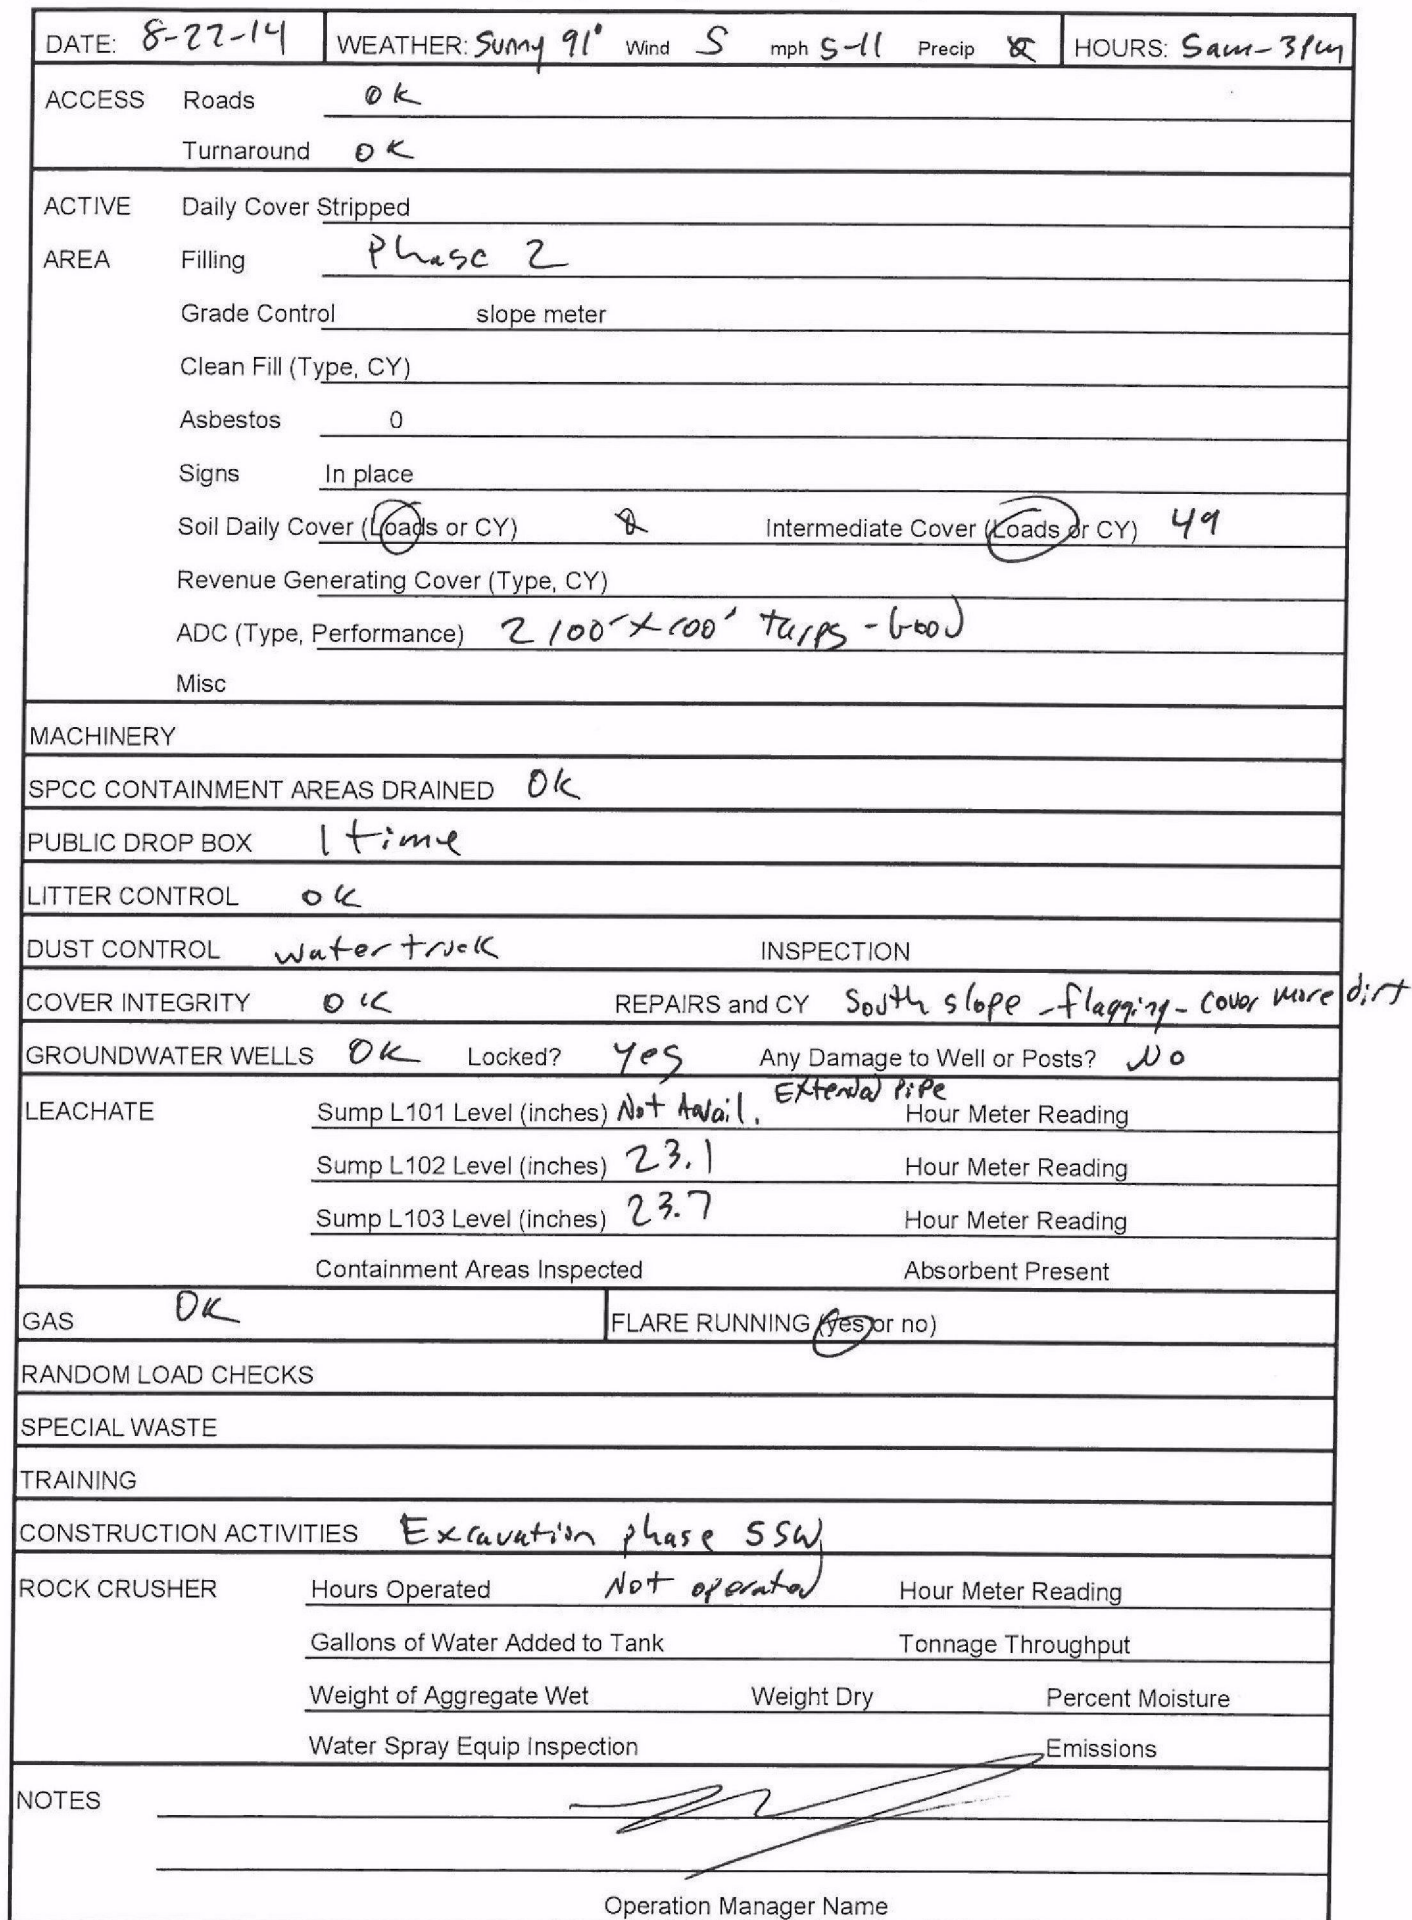 DATE: 8-22-14 WEATHER: Sunny 91° Wind S mph 5-11 Precip 0 HOURS: 5am-3pm
ACCESS Roads OK
Turnaround OK
ACTIVE Daily Cover Stripped
AREA Filling Phase 2
Grade Control slope meter
Clean Fill (Type, CY)
Asbestos 0
Signs In place
Soil Daily Cover (Loads or CY) 0 Intermediate Cover (Loads or CY) 49
Revenue Generating Cover (Type, CY)
ADC (Type, Performance) 2 100'x100' tarps - Good
Misc
MACHINERY
SPCC CONTAINMENT AREAS DRAINED OK
PUBLIC DROP BOX 1 time
LITTER CONTROL OK
DUST CONTROL water truck INSPECTION
COVER INTEGRITY OK REPAIRS and CY South slope - flagging - cover more dirt
GROUNDWATER WELLS OK Locked? Yes Any Damage to Well or Posts? No
LEACHATE Sump L101 Level (inches) Not Avail. Extended Pipe Hour Meter Reading
Sump L102 Level (inches) 23.1 Hour Meter Reading
Sump L103 Level (inches) 23.7 Hour Meter Reading
Containment Areas Inspected Absorbent Present
GAS OK FLARE RUNNING (yes or no)
RANDOM LOAD CHECKS
SPECIAL WASTE
TRAINING
CONSTRUCTION ACTIVITIES Excavation phase 5SW
ROCK CRUSHER Hours Operated Not operated Hour Meter Reading
Gallons of Water Added to Tank Tonnage Throughput
Weight of Aggregate Wet Weight Dry Percent Moisture
Water Spray Equip Inspection Emissions
NOTES
Operation Manager Name